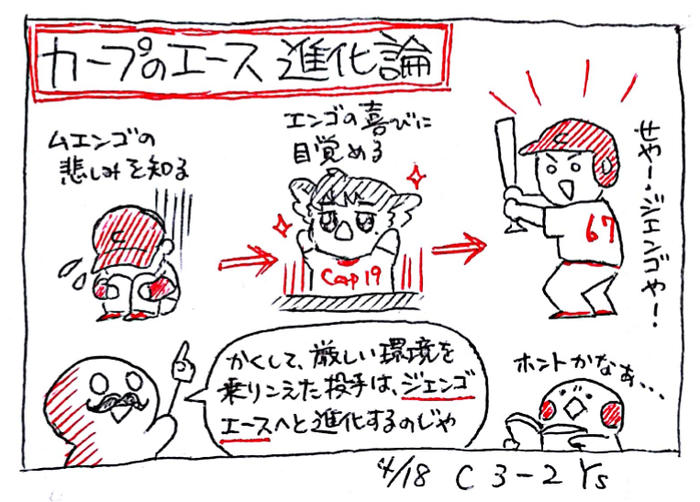 カープのエース進化論
ムエンゴの
悲しみを知る
エンゴの喜びに
目覚める
せやー・ジエンゴやー!
C
Cap19
67
かくして、厳しい環境を
乗りこえた投手は、ジエンゴ
エースへと進化するのじゃ
ホントかなぁ...
4/18 C 3-2 Ys